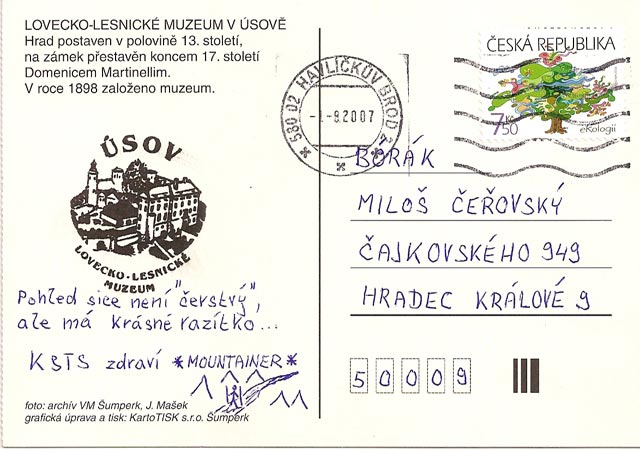 LOVECKO-LESNICKÉ MUZEUM V ÚSOVĚ
Hrad postaven v polovině 13. století,
na zámek přestavěn koncem 17. století
Domenicem Martinellim.
V roce 1898 založeno muzeum.
ÚSOV
LOVECKO-LESNICKÉ
MUZEUM
Pohled sice není "čerstvý",
ale má krásné razítko...
KBTS zdraví *MOUNTAINER*
foto: archív VM Šumperk, J. Mašek
grafická úprava a tisk: KartoTISK s.r.o. Šumperk
580 02 HAVLÍČKŮV BROD 2
-1.-8.2007
ČESKÁ REPUBLIKA
750 Kč
eKologii
BORÁK
MILOŠ ČEŘOVSKÝ
ČAJKOVSKÉHO 949
HRADEC KRÁLOVÉ 9
50009